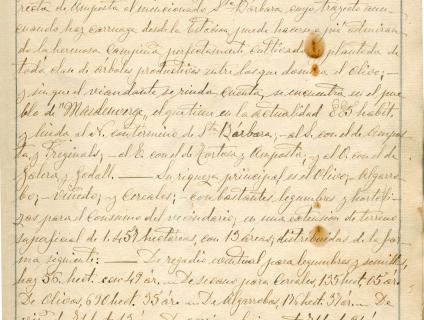 recta de Amposta al mencionado Sta Bárbara cuyo trayecto aun
cuando hay carruaje desde la Estacion, puede hacerse á pié admiran
do la hermosa Campiña perfectamente cultivada y plantada de
toda clase de árboles productivos entre los que domina el Olivo;
y sin que el viandante se rinda cuenta, se encuentra en el pue
blo de "Masdenverge", el que tiene en la actualidad habit.
y linda al N. con término de Sta Bárbara; al S. con el de Ampos
ta y Freginals; al E. con el de Tortosa y Amposta; y al O. con el de
Galera y Godall. — Su riqueza principal es el Olivo, Algarro
bo, Viñedo, y Cereales; con bastantes legumbres y hortali
zas para el consumo del vecindario, en una extensión de terreno
superficial de 1.457 hectáreas, con 13 áreas, distribuidas de la for
ma siguiente: — De regadio eventual para legumbres y semillas,
hay 55 hect. con 49 ár. — De secano para Cereales, 135 hect. 65 ár.
De Olivos, 690 hect. 35 ár. — De Algarrobos, 176 hect. 37 ár. — De